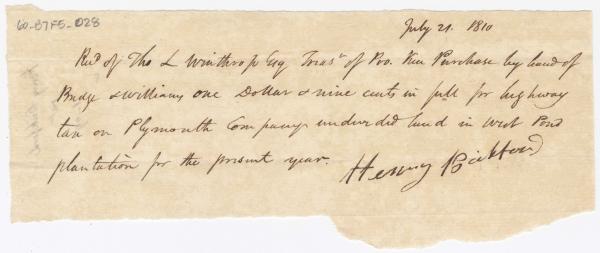 60-B7F5-028
July 21. 1810
Recd of Tho L Winthrop Esq Treasr of Pro. Ken Purchase by hand of
Bridge & Williams one Dollar & nine cents in full for highway
tax on Plymouth Company undivided land in West Pond
plantation for the present year.
Henry Bickford